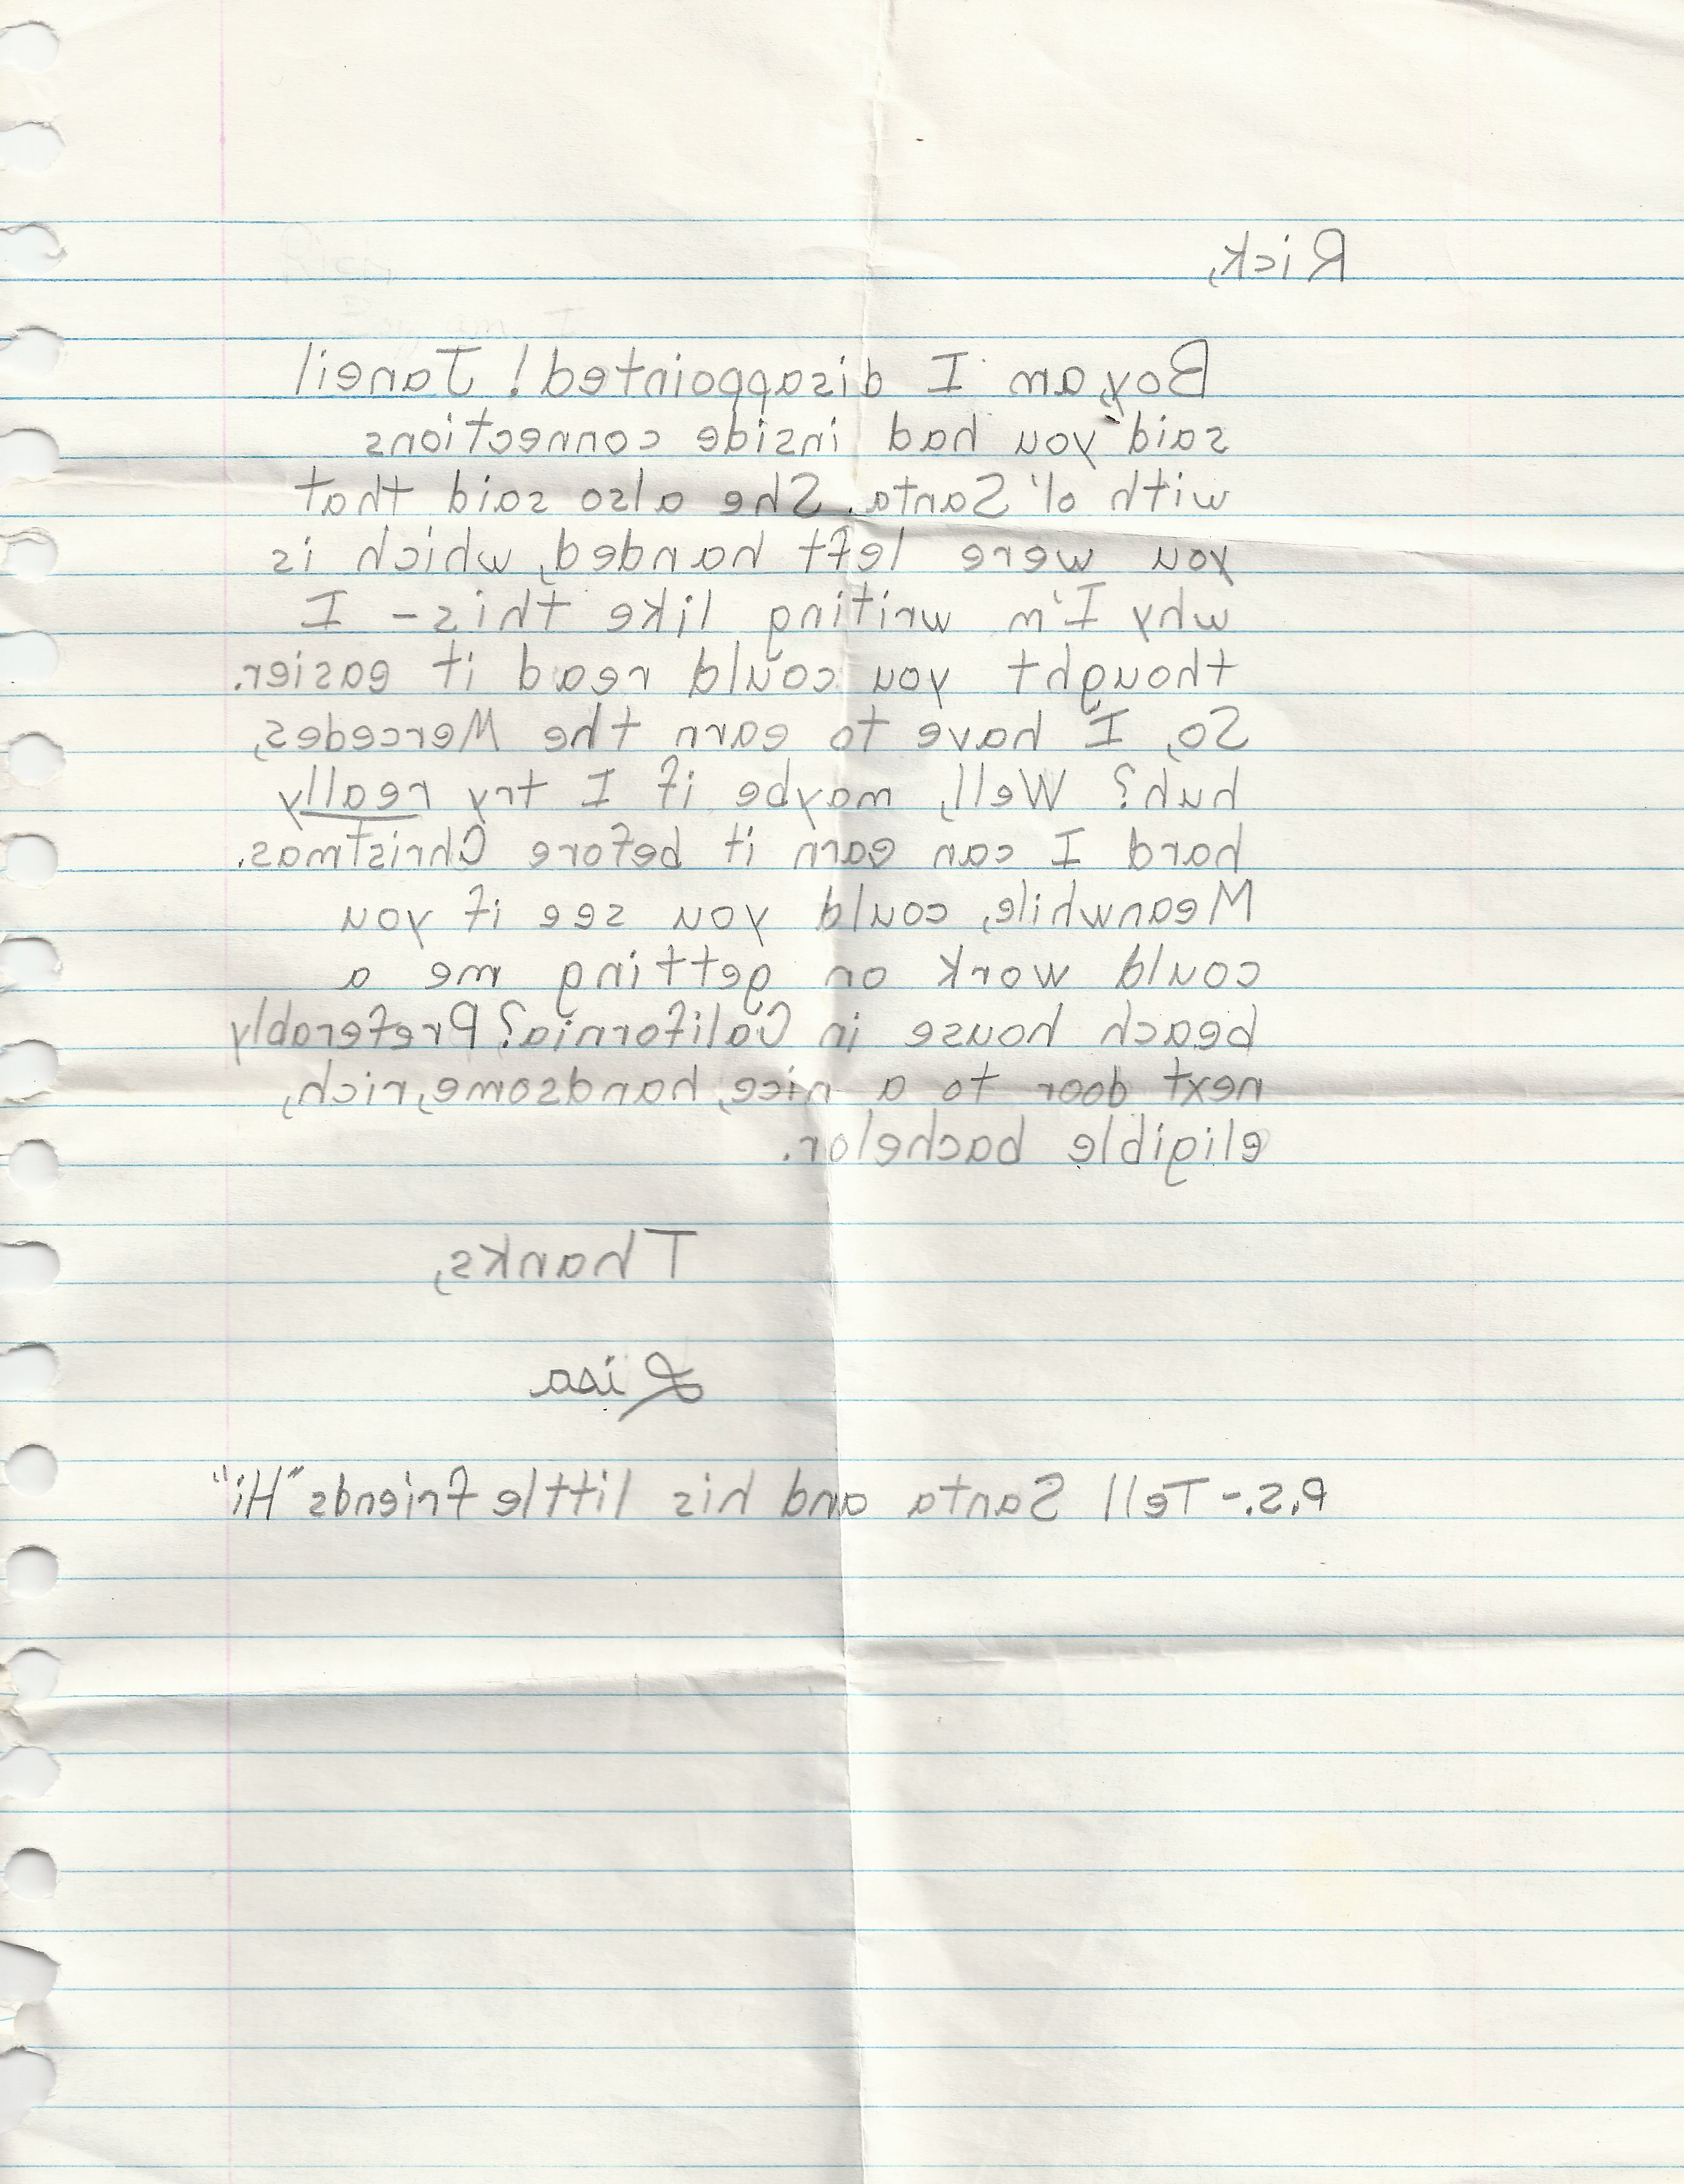 Rick,
Boy, am I disappointed! Janeil
said you had inside connections
with ol' Santa. She also said that
you were left handed, which is
why I'm writing like this - I
thought you could read it easier.
So, I have to earn the Mercedes,
huh? Well, maybe if I try really
hard I can earn it before Christmas.
Meanwhile, could you see if you
could work on getting me a
beach house in California? Preferably
next door to a nice, handsome, rich,
eligible bachelor.
Thanks,
Lisa
P.S.- Tell Santa and his little friends "Hi"